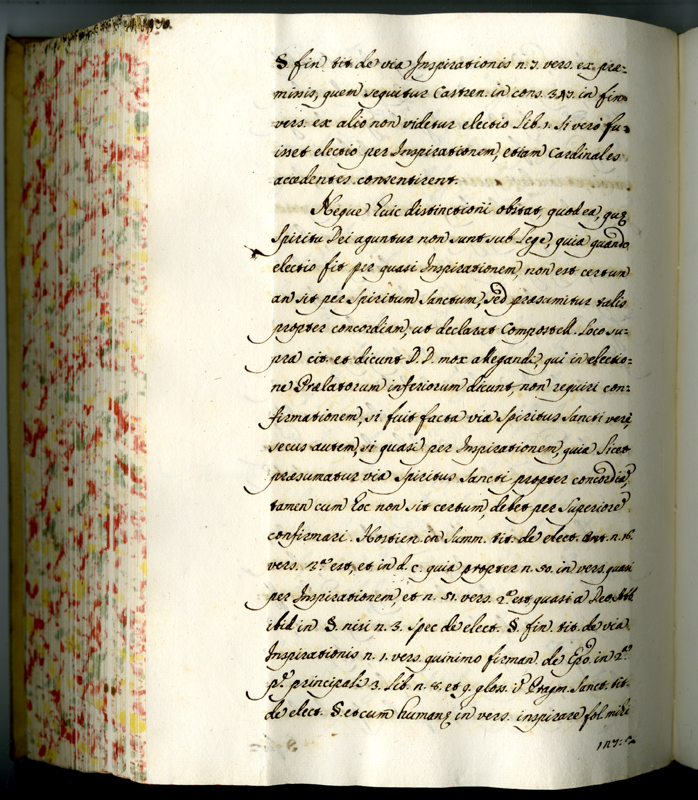 § fin tit. de via Inspirationis n. 7. vers. ex præ=
missis, quem sequitur Castren. in cons. 347. in fin.
vers. ex alio non videtur electio Lib. 1. Si vero fu=
isset electio per Inspirationem, etiam Cardinales
accedentes consentirent.
Neque huic distinctioni obstat, quod ea, quę
Spiritu Dei aguntur non sunt sub Lege, quia quando
electio fit per quasi Inspirationem, non est certum
an sit per Spiritum Sanctum, sed præsumitur talis
propter concordiam, ut declarat Compostell. Loco su=
pra cit. et dicunt D.D. mox allegandi, qui in electio=
ne Prælatorum inferiorum dicunt, non requiri con=
firmationem, si fuit facta via Spiritus Sancti verè,
secus autem, si quasi per Inspirationem, quia licet
præsumatur via Spiritus Sancti propter concordiã,
tamen cum hoc non sit certum, debet per Superiorẽ
confirmari. Hostien. in Summ. tit. de elect. n. 16.
vers. 2.ª est, et in d. c. quia propter n. 50. in vers. quasi
per Inspirationem, et n. 51. vers. 2.ª est quasi a Deo. Abb
ibid in §. nisi n. 3. Spec de elect. §. fin. tit. de via
Inspirationis n. 1. vers. quinimo firman. de Epõ. in 2.ª
p.ᵉ principali 3. Lib. n. 8. et 9. gloss. Pragm. Sanct. tit.
de elect. §. et cum humanę in vers. inspirare fol. mihi